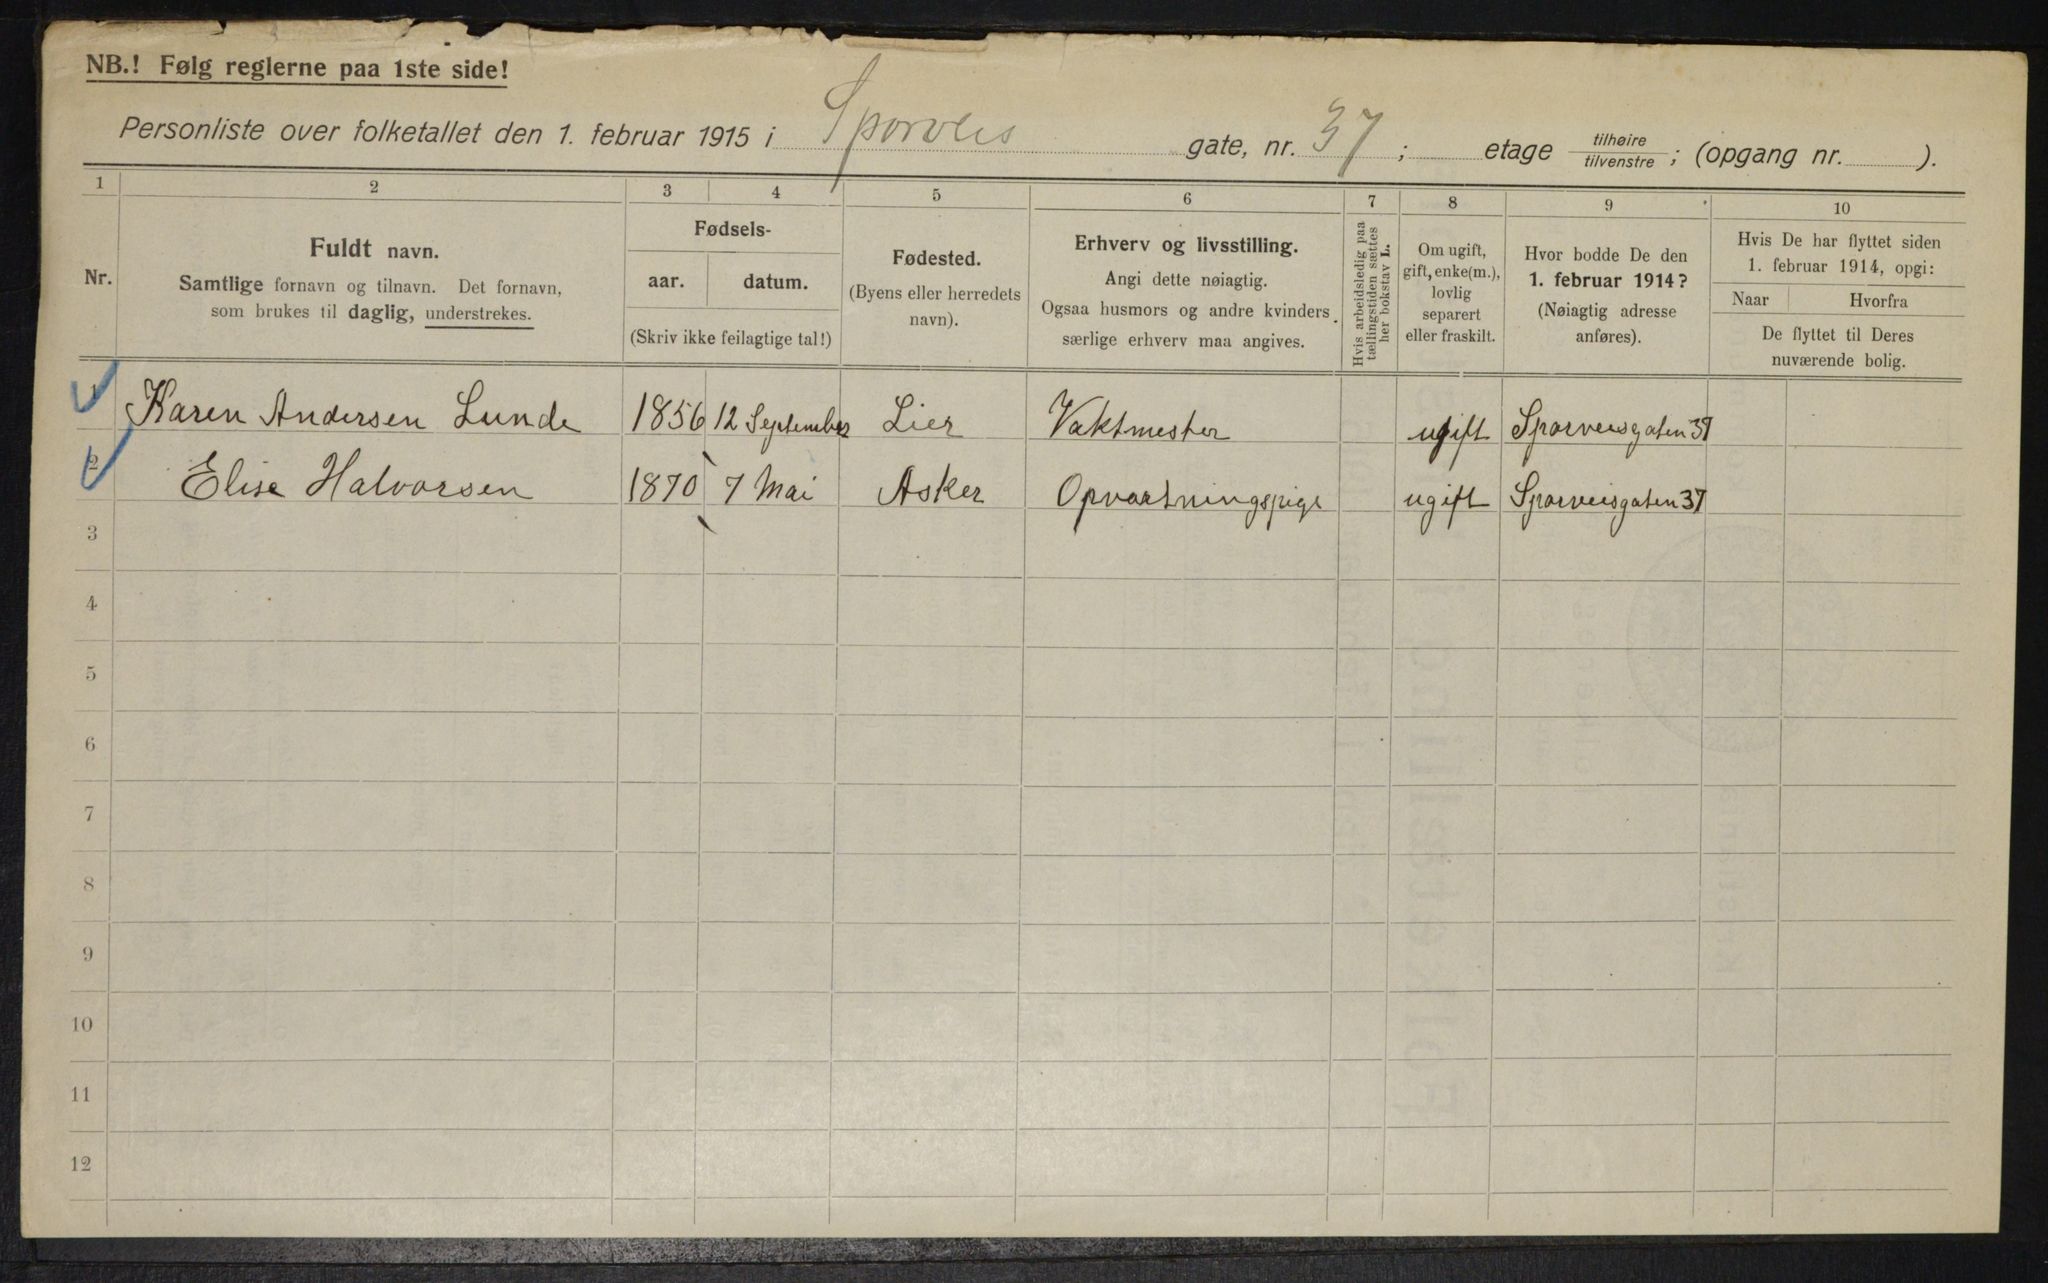 NB.! Følg reglerne paa 1ste side!
Personliste over folketallet den 1. februar 1915 i Sporveis gate, nr. 37 ; etage tilhøire/tilvenstre ; (opgang nr. ).
1 2 3 4 5 6 7 8 9 10
Nr.
Fuldt navn.
Samtlige fornavn og tilnavn. Det fornavn,
som brukes til daglig, understrekes.
Fødsels-
aar. datum.
(Skriv ikke feilagtige tal!)
Fødested.
(Byens eller herredets
navn).
Erhverv og livsstilling.
Angi dette nøiagtig.
Ogsaa husmors og andre kvinders
særlige erhverv maa angives.
Hvis arbeidsledig paa
tællingstiden sættes
her bokstav L.
Om ugift,
gift, enke(m.),
lovlig
separert
eller fraskilt.
Hvor bodde De den
1. februar 1914?
(Nøiagtig adresse
anføres).
Hvis De har flyttet siden
1. februar 1914, opgi:
Naar Hvorfra
De flyttet til Deres
nuværende bolig.
1 Karen Andersen Lunde 1856 12 September Lier Vaktmester ugift Sporveisgaten 37
2 Elise Halvorsen 1870 7 Mai Asker Opvartningspige ugift Sporveisgaten 37
3
4
5
6
7
8
9
10
11
12